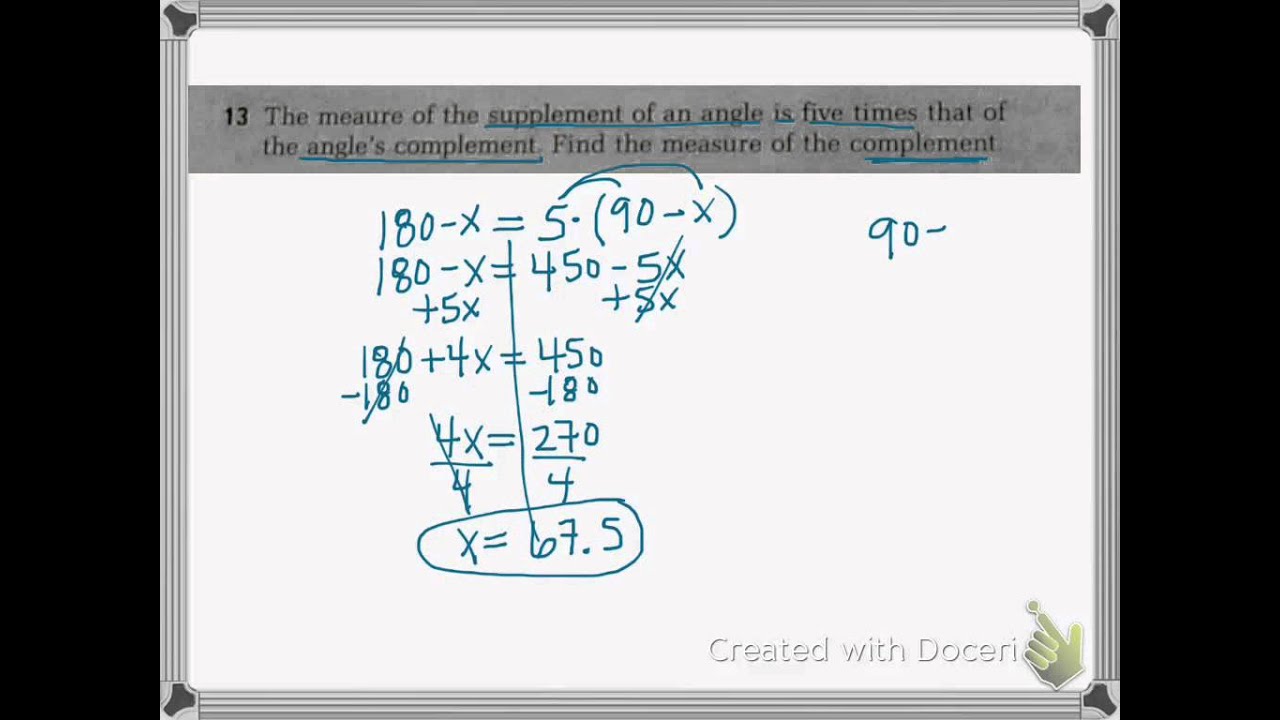 13 The meaure of the supplement of an angle is five times that of
the angle's complement. Find the measure of the complement.
180-x = 5·(90-x)
90-
180-x = 450-5x
+5x +5x
180+4x = 450
-180 -180
4x = 270
4 4
x = 67.5
Created with Doceri